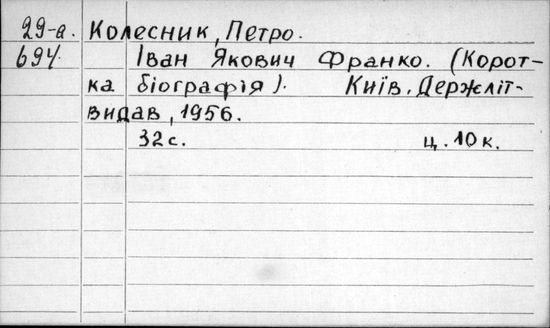 29-а. Колесник, Петро.
694. Іван Якович Франко. (Корот-
ка біографія). Київ. Держліт-
видав, 1956.
32 с. ц. 10 к.